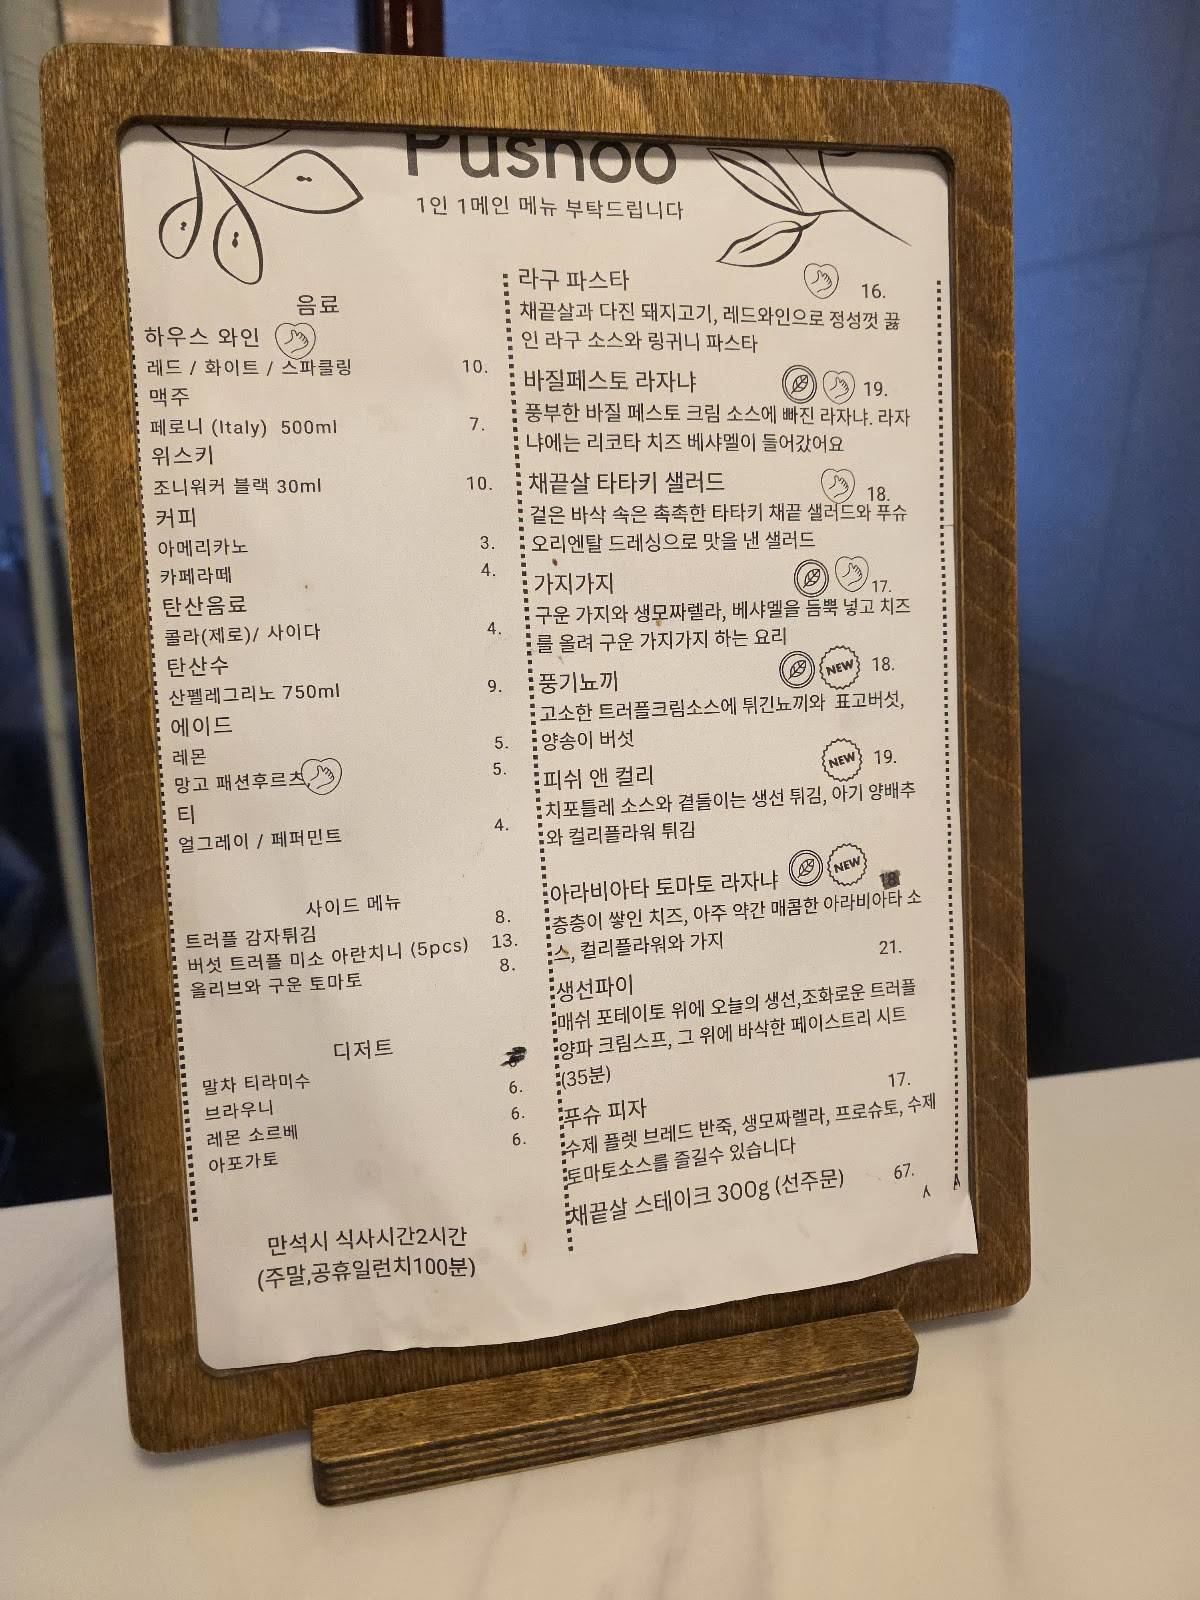 Pushoo
1인 1메인 메뉴 부탁드립니다
음료
하우스 와인
레드 / 화이트 / 스파클링 10.
맥주
페로니 (Italy) 500ml 7.
위스키
조니워커 블랙 30ml 10.
커피
아메리카노 3.
카페라떼 4.
탄산음료
콜라(제로)/ 사이다 4.
탄산수
산펠레그리노 750ml 9.
에이드
레몬 5.
망고 패션후르츠 5.
티
얼그레이 / 페퍼민트 4.
사이드 메뉴
트러플 감자튀김 8.
버섯 트러플 미소 아란치니 (5pcs) 13.
올리브와 구운 토마토 8.
디저트
말차 티라미수
브라우니 6.
레몬 소르베 6.
아포가토 6.
만석시 식사시간2시간
(주말,공휴일런치100분)
라구 파스타 16.
채끝살과 다진 돼지고기, 레드와인으로 정성껏 끓
인 라구 소스와 링귀니 파스타
바질페스토 라자냐 19.
풍부한 바질 페스토 크림 소스에 빠진 라자냐. 라자
냐에는 리코타 치즈 베샤멜이 들어갔어요
채끝살 타타키 샐러드 18.
겉은 바삭 속은 촉촉한 타타키 채끝 샐러드와 푸슈
오리엔탈 드레싱으로 맛을 낸 샐러드
가지가지 17.
구운 가지와 생모짜렐라, 베샤멜을 듬뿍 넣고 치즈
를 올려 구운 가지가지 하는 요리
풍기뇨끼 NEW 18.
고소한 트러플크림소스에 튀긴뇨끼와 표고버섯,
양송이 버섯
피쉬 앤 컬리 NEW 19.
치포틀레 소스와 곁들이는 생선 튀김, 아기 양배추
와 컬리플라워 튀김
아라비아타 토마토 라자냐 NEW 18
층층이 쌓인 치즈, 아주 약간 매콤한 아라비아타 소
스, 컬리플라워와 가지
생선파이 21.
매쉬 포테이토 위에 오늘의 생선,조화로운 트러플
양파 크림스프, 그 위에 바삭한 페이스트리 시트
(35분)
푸슈 피자 17.
수제 플렛 브레드 반죽, 생모짜렐라, 프로슈토, 수제
토마토소스를 즐길수 있습니다
채끝살 스테이크 300g (선주문) 67.